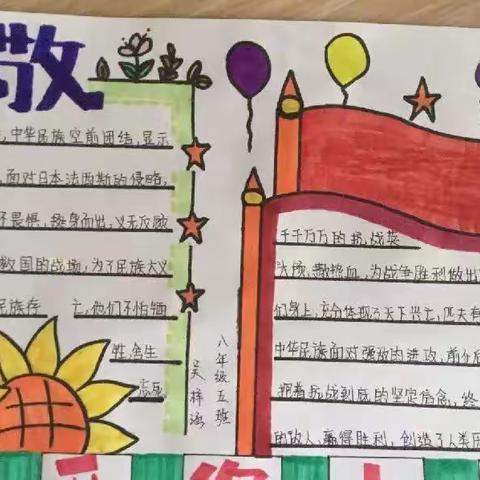 敬
中华民族空前团结,显示
面对日本法西斯的侵略,
不畏惧,挺身而出,义无反顾
救国的战场,为了民族大义
民族存亡,他们不怕牺
牲,舍生
忘死
八年级五班
吴梓涵
千千万万的抗战英
头颅、撒热血,为战争胜利做出
们身上,充分体现了天下兴亡,匹夫有
中华民族面对强敌的进攻,前仆后
抱着抗战到底的坚定信念,终
的敌人、赢得胜利,创造了人类历